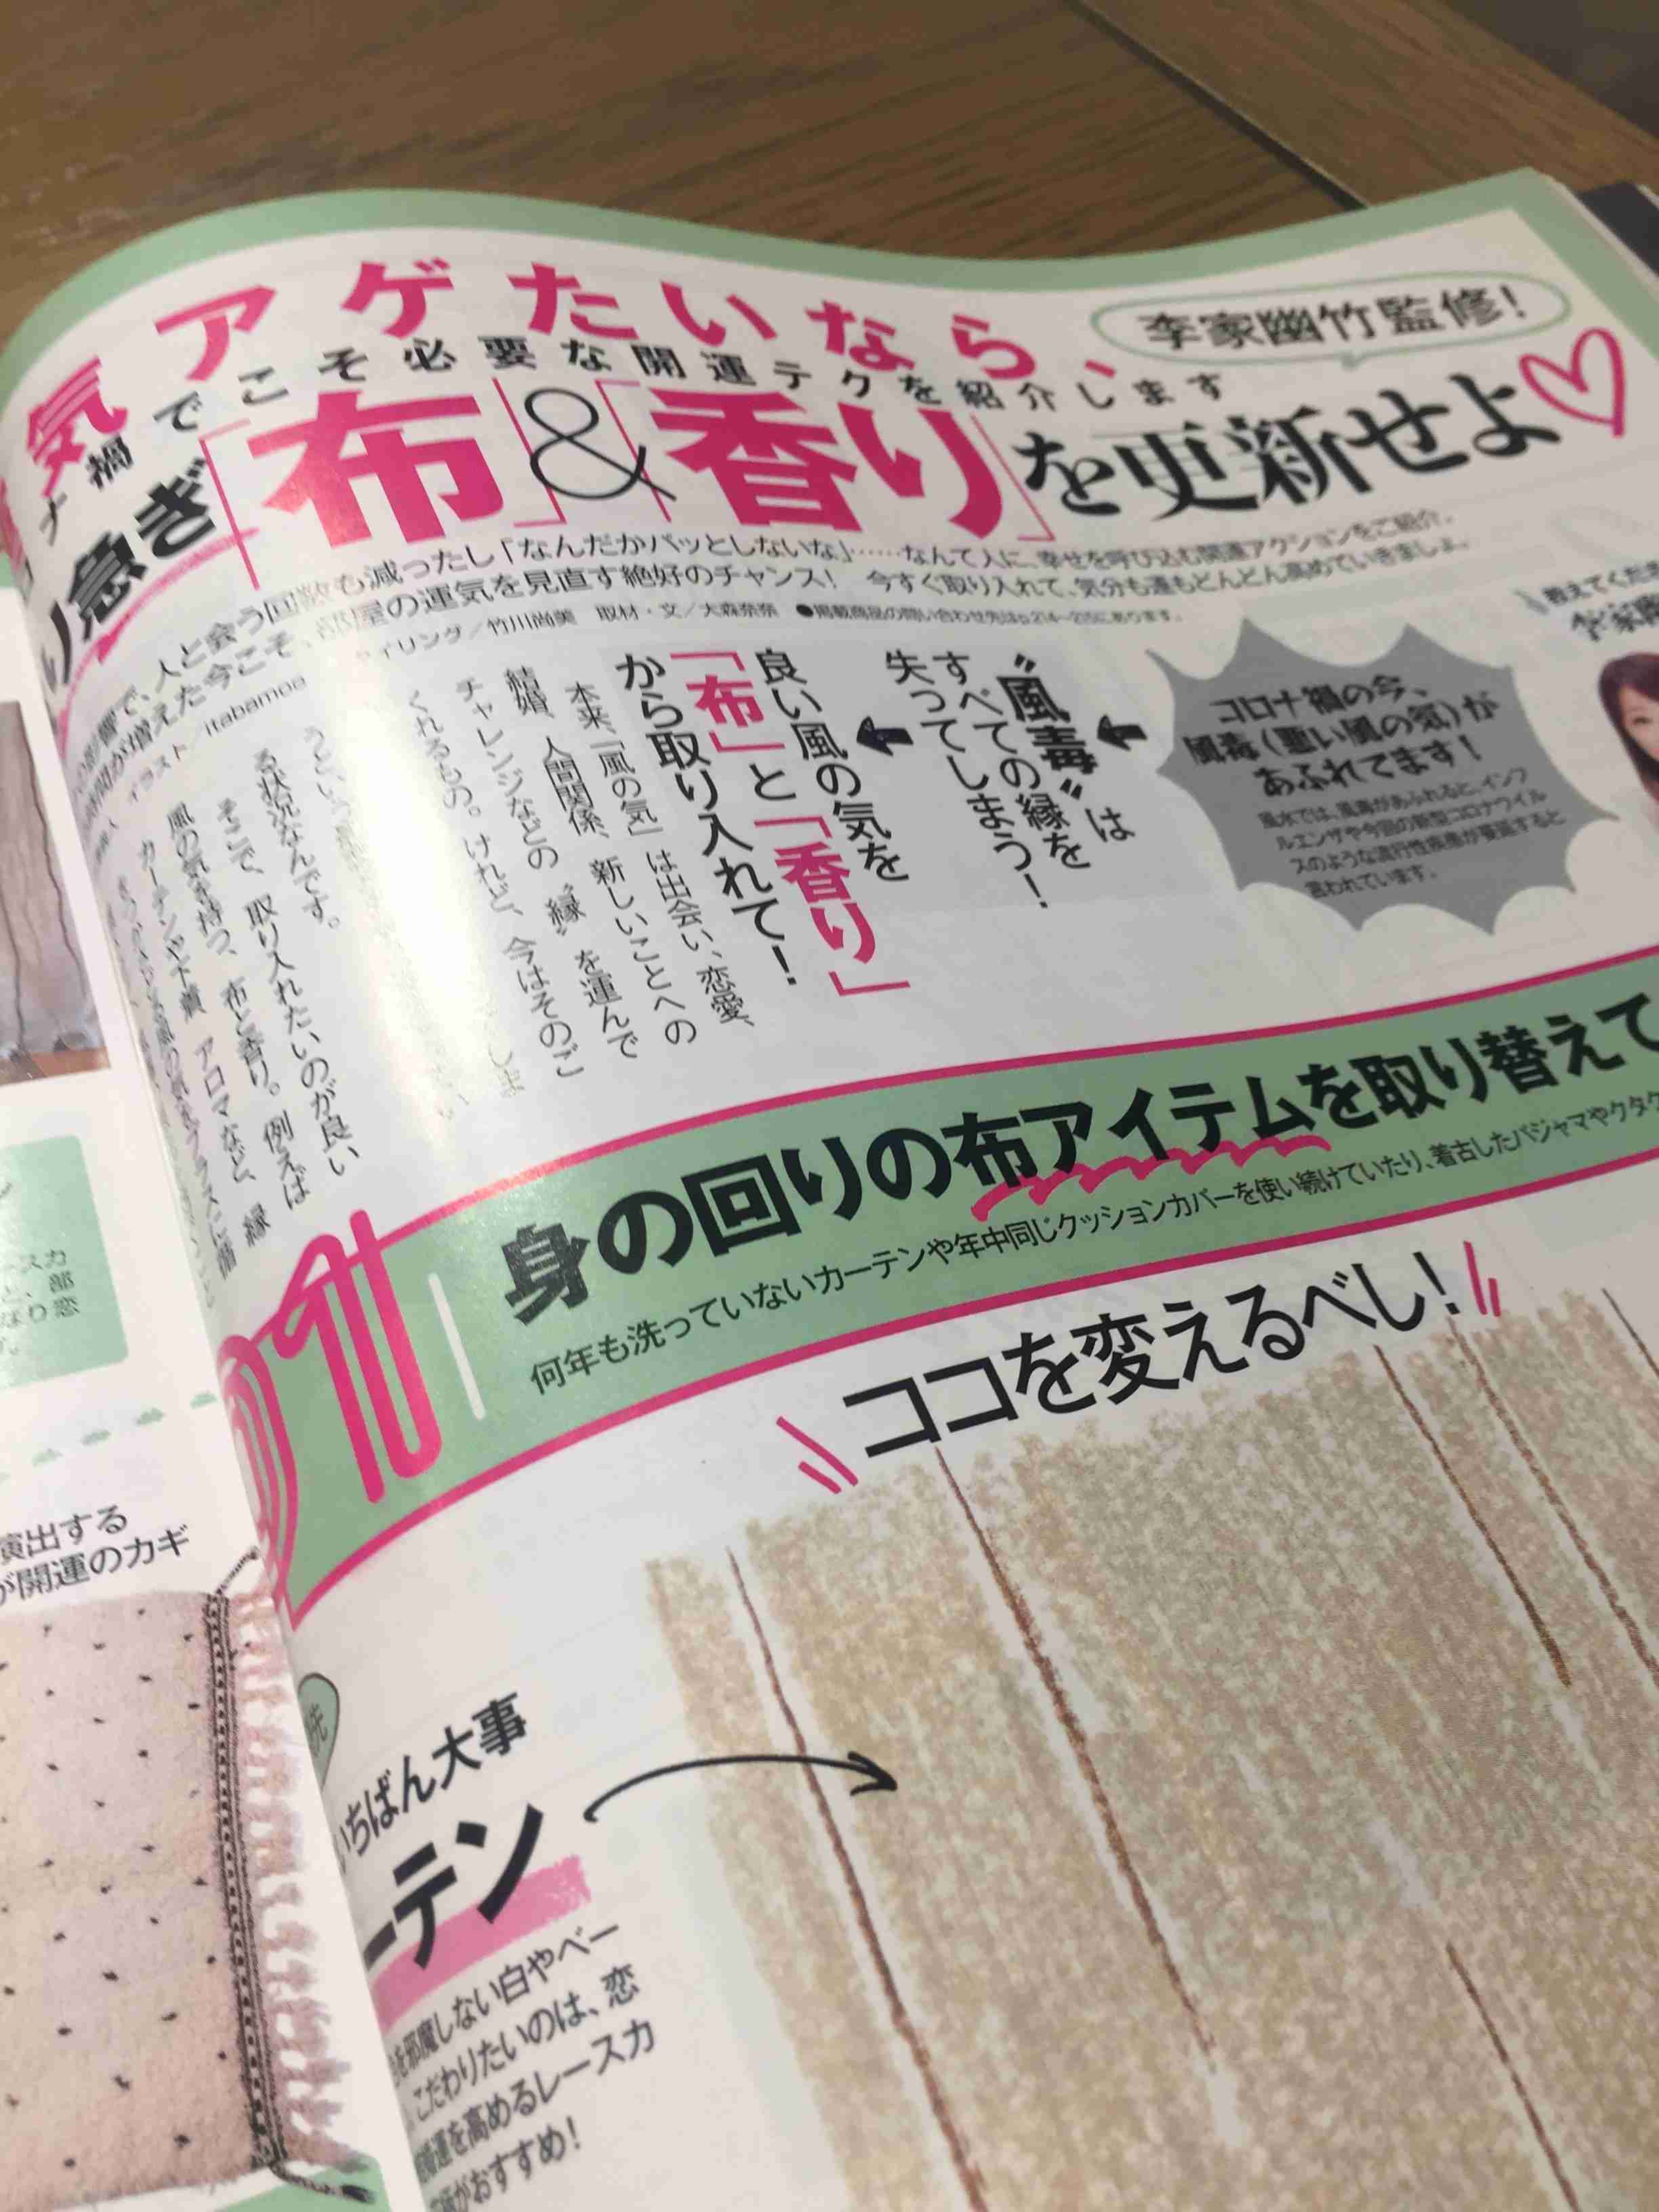 李家幽竹監修!
気アゲたいなら、
禍でこそ必要な開運テクを紹介します
急ぎ「布」&「香り」を更新せよ
人と会う回数も減ったし「なんだかパッとしないな」……なんて人に、幸せを呼び込む開運アクションをご紹介。
時間が増えた今こそ、部屋の運気を見直す絶好のチャンス! 今すぐ取り入れて、気分も運もどんどん高めていきましょ。
イラスト/itabamoe
イリング/竹川尚美 取材・文/大森奈奈 ●掲載商品の問い合わせ先はp.214~215にあります。
教えてくださ
コロナ禍の今、
風毒(悪い風の気)が
あふれてます!
風水では、風毒があふれると、インフ
ルエンザや今回の新型コロナウイル
スのような流行性疾患が蔓延すると
言われています。
“風毒”は
すべての縁を
失ってしまう!
良い風の気を
「布」と「香り」
から取り入れて!
本来、「風の気」は出会い、恋愛、
結婚、人間関係、新しいことへの
チャレンジなどの“縁”を運んで
くれるもの。けれど、今はそのご
る状況なんです。
そこで、取り入れたいのが良い
風の気を持つ、布と香り。例えば
カーテンや下着、アロマなど、縁
01
身の回りの布アイテムを取り替えて
何年も洗っていないカーテンや年中同じクッションカバーを使い続けていたり、着古したパジャマやクタク
ココを変えるべし!
いちばん大事
ーテン
を邪魔しない白やベー
こだわりたいのは、恋
婚運を高めるレースカ
がおすすめ!
スカ
と、部
なり恋
演出する
が開運のカギ